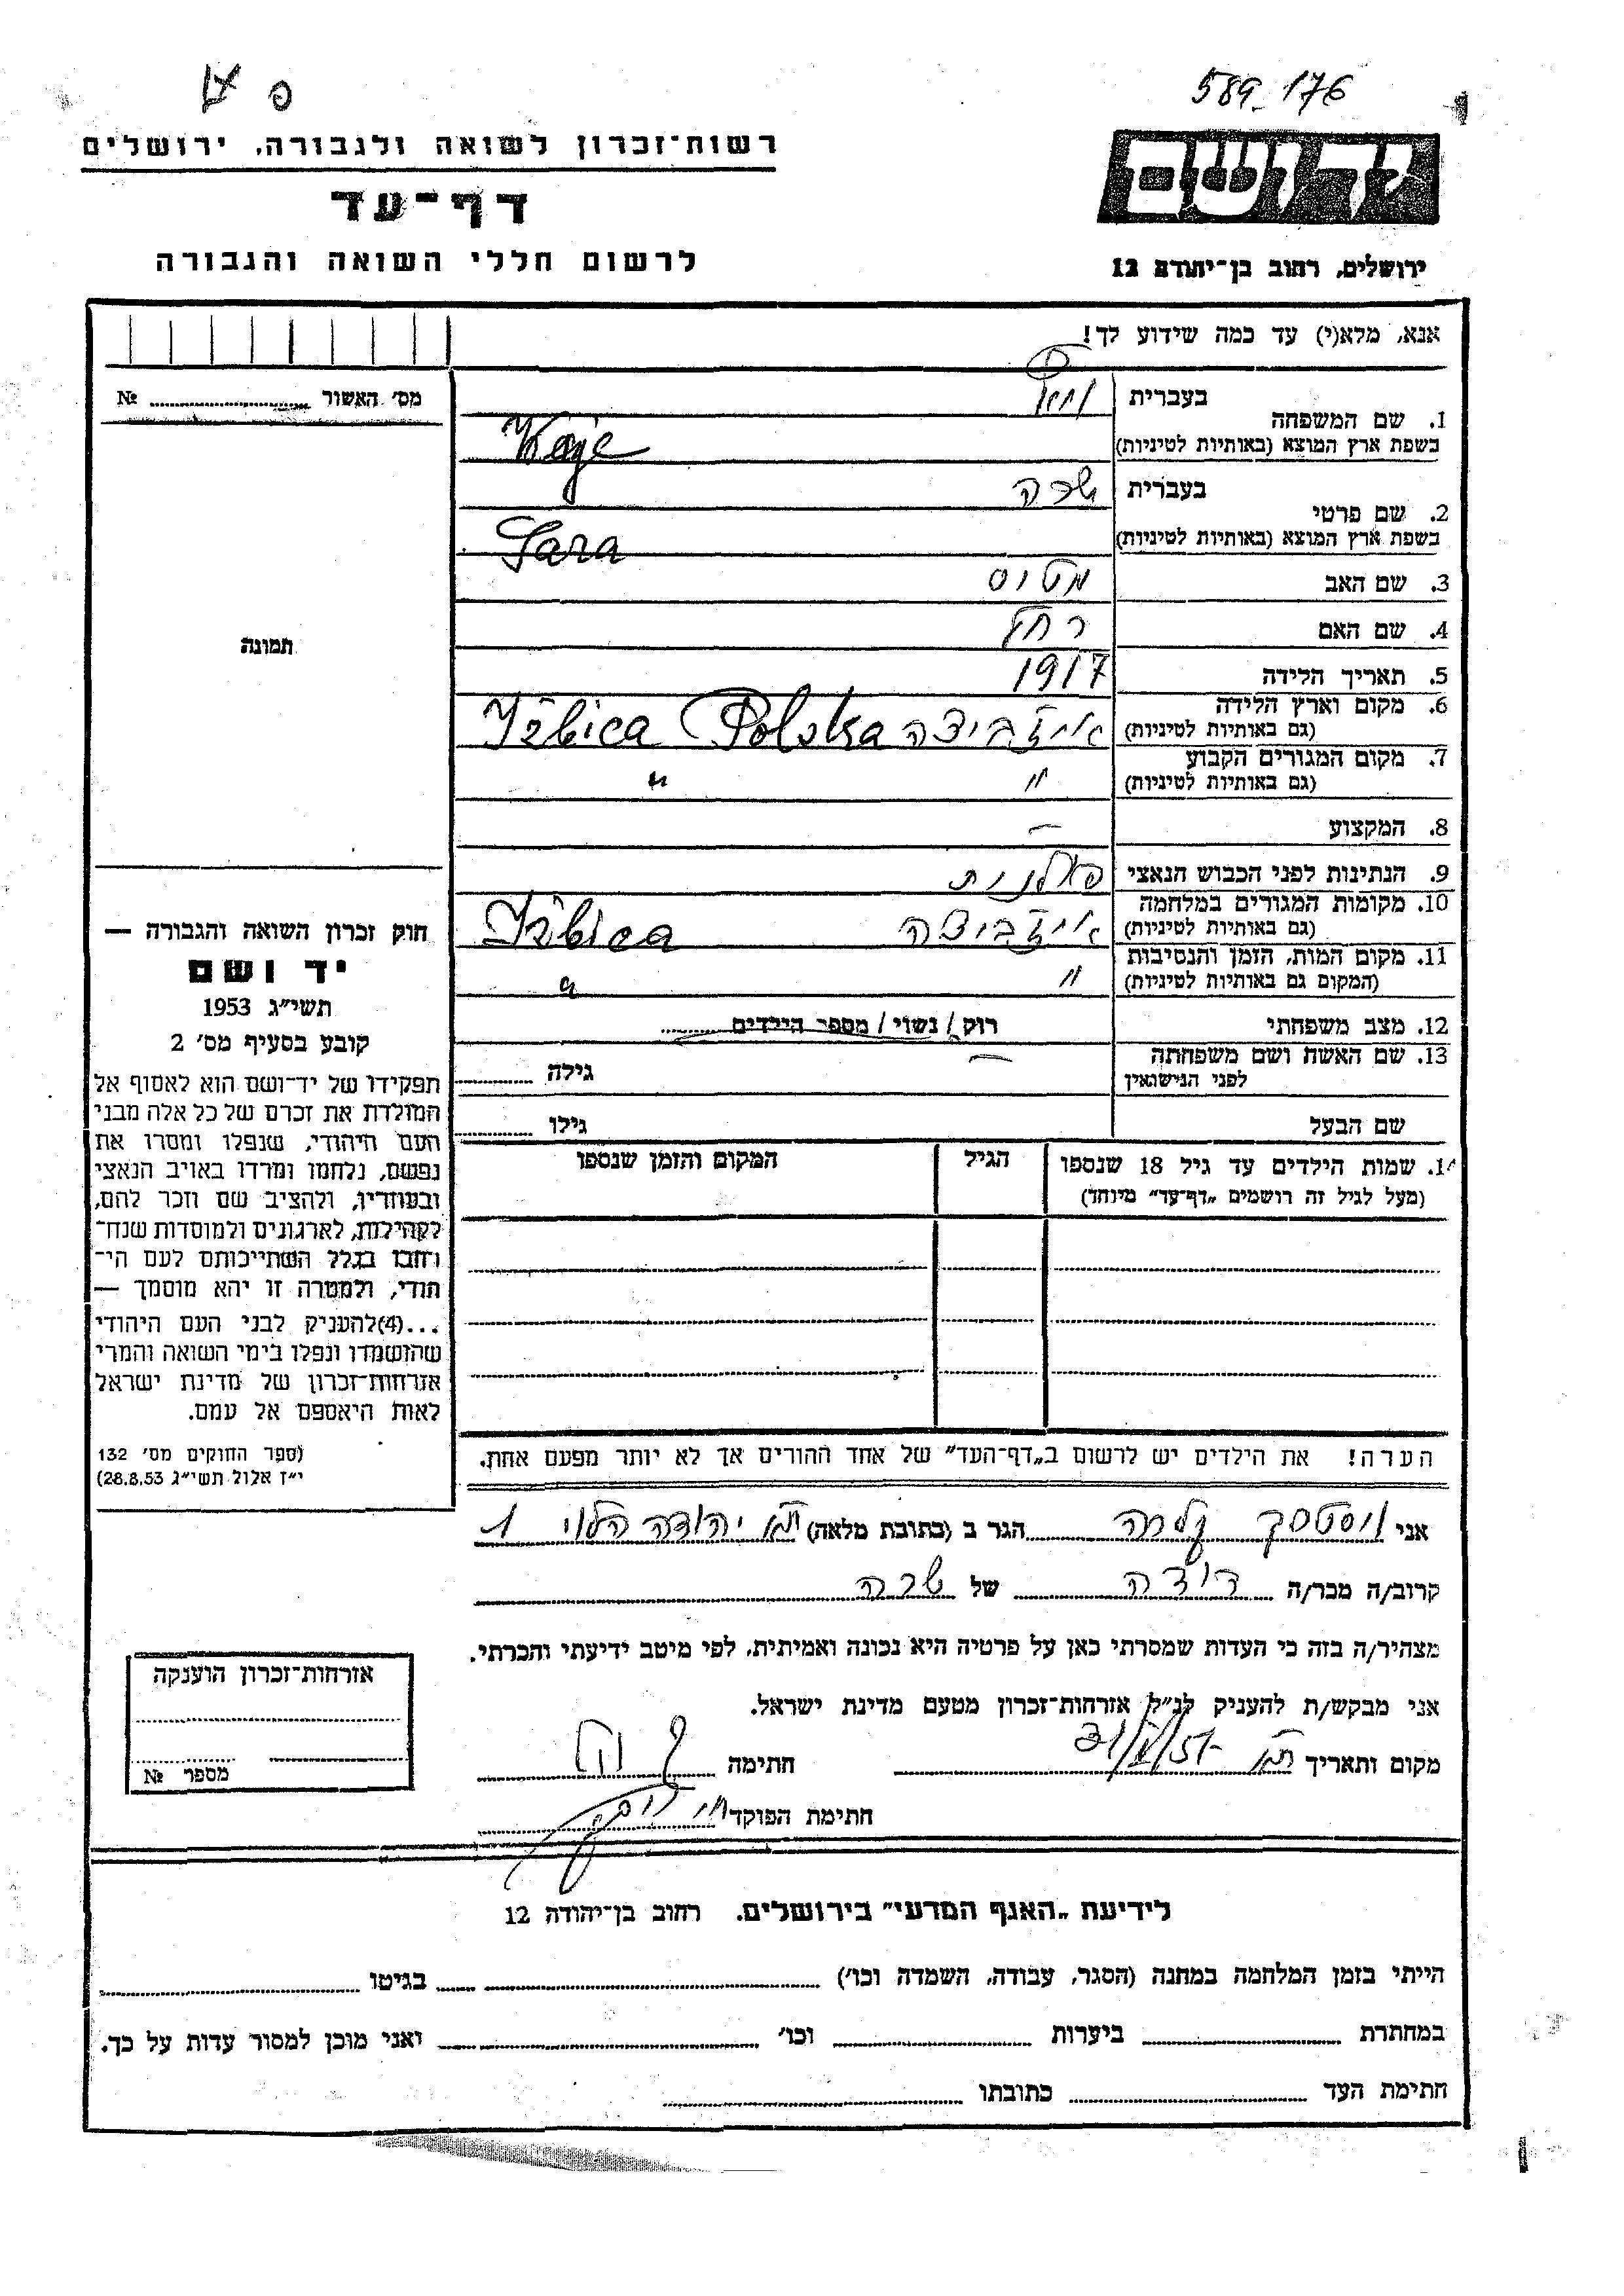 589_176
רשות־זכרון לשואה ולגבורה, ירושלים
דף־עד
לרשום חללי השואה והגבורה
יד ושם
ירושלים, רחוב בן־יהודה 12
אנא, מלא(י) עד כמה שידוע לך!
מס׳ האשור № 
1. שם המשפחה בעברית
בשפת ארץ המוצא (באותיות לטיניות)
2. שם פרטי בעברית שרה
בשפת ארץ המוצא (באותיות לטיניות) Sara
3. שם האב מטוס
4. שם האם רחל
תמונה
5. תאריך הלידה 1917
6. מקום וארץ הלידה
(גם באותיות לטיניות) איזביצה Polska Iżbica
7. מקום המגורים הקבוע
(גם באותיות לטיניות) " "
8. המקצוע —
9. הנתינות לפני הכבוש הנאצי פולנית
10. מקומות המגורים במלחמה
(גם באותיות לטיניות) איזביצה Iżbica
11. מקום המות, הזמן והנסיבות
(המקום גם באותיות לטיניות) " "
12. מצב משפחתי רוק/ נשוי/ מספר הילדים
13. שם האשה ושם משפחתה
לפני הנישואין — גילה
שם הבעל גילו
14. שמות הילדים עד גיל 18 שנספו הגיל המקום והזמן שנספו
(מעל לגיל זה רושמים „דף־עד״ מיוחד)
הערה! את הילדים יש לרשום ב„דף־העד״ של אחד ההורים אך לא יותר מפעם אחת.
חוק זכרון השואה והגבורה —
יד ושם
תשי״ג 1953
קובע בסעיף מס׳ 2
תפקידו של יד־ושם הוא לאסוף אל
המולדת את זכרם של כל אלה מבני
העם היהודי, שנפלו ומסרו את
נפשם, נלחמו ומרדו באויב הנאצי
ובעוזריו, ולהציב שם וזכר להם,
לקהילות, לארגונים ולמוסדות שנח־
רבו בגלל השתייכותם לעם הי־
הודי, ולמטרה זו יהא מוסמך —
...(4)להעניק לבני העם היהודי
שהושמדו ונפלו בימי השואה והמרי
אזרחות־זכרון של מדינת ישראל
לאות היאספם אל עמם.
(ספר החוקים מס׳ 132
י״ז אלול תשי״ג 28.8.53)
אני הגר ב (כתובת מלאה) יהודה הלוי
קרוב/ה מכר/ה דודה של שרה
מצהיר/ה בזה כי העדות שמסרתי כאן על פרטיה היא נכונה ואמיתית, לפי מיטב ידיעתי והכרתי.
אני מבקש/ת להעניק לנ״ל אזרחות־זכרון מטעם מדינת ישראל.
מקום ותאריך חתימה
חתימת הפוקד
אזרחות־זכרון הוענקה
מספר №
לידיעת „האגף המדעי״ בירושלים. רחוב בן־יהודה 12
הייתי בזמן המלחמה במחנה (הסגר, עבודה, השמדה וכו׳) בגיטו
במחתרת ביערות וכו׳ ואני מוכן למסור עדות על כך.
חתימת העד כתובתו